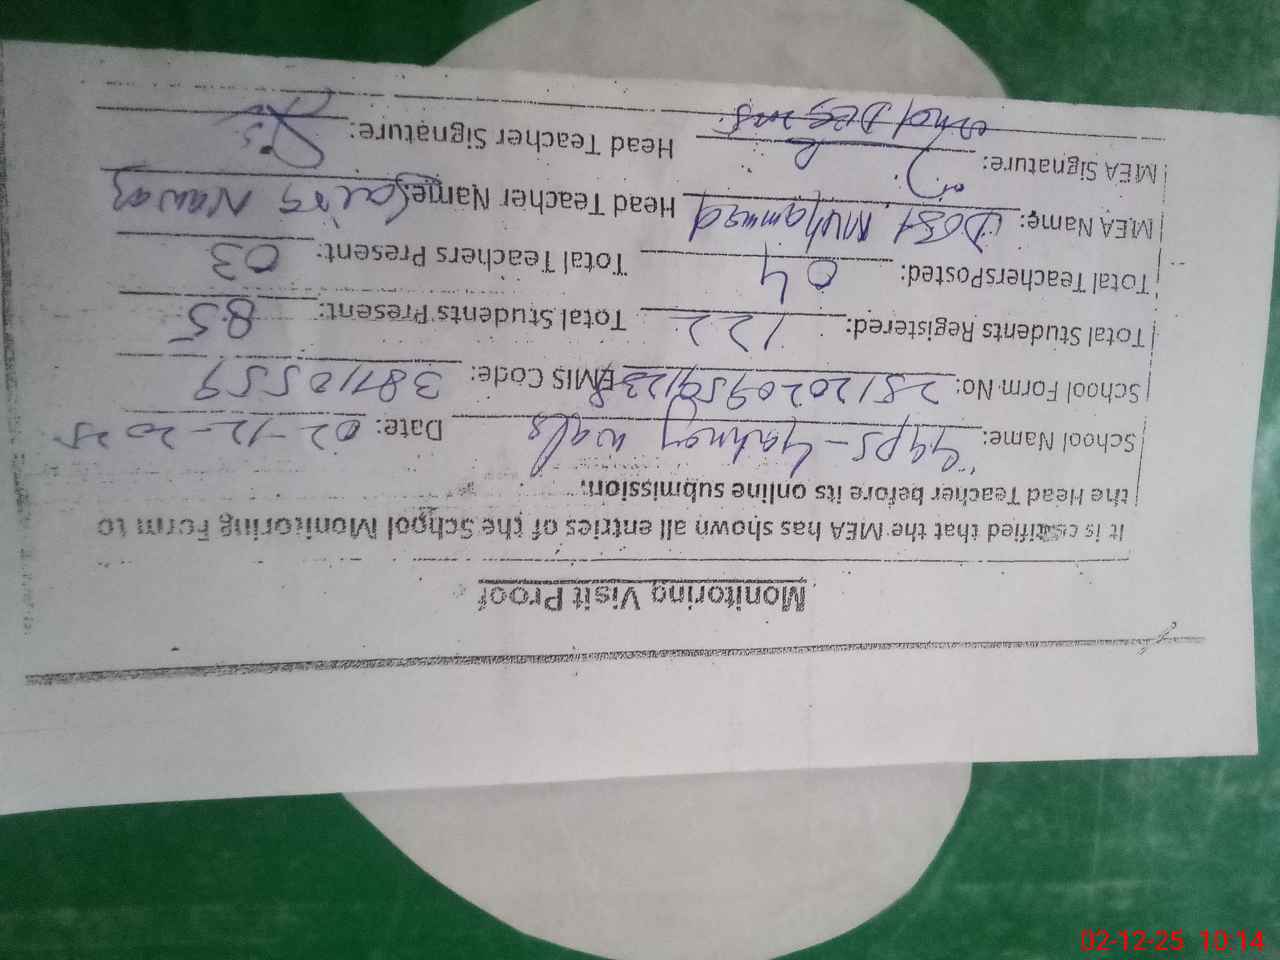 Monitoring Visit Proof
It is certified that the MEA has shown all entries of the School Monitoring Form to
the Head Teacher before its online submission.
School Name: GGPS - Date: 02-12-2025
School Form No: EMIS Code: 38110559
Total Students Registered: 122 Total Students Present: 85
Total Teachers Posted: 04 Total Teachers Present: 03
MEA Name: Dost Muhammad Head Teacher Name: Nawaz
MEA Signature: Head Teacher Signature:
02-12-25 10:14